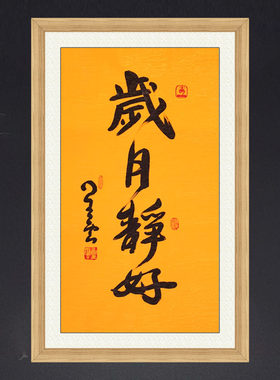 歲月靜好